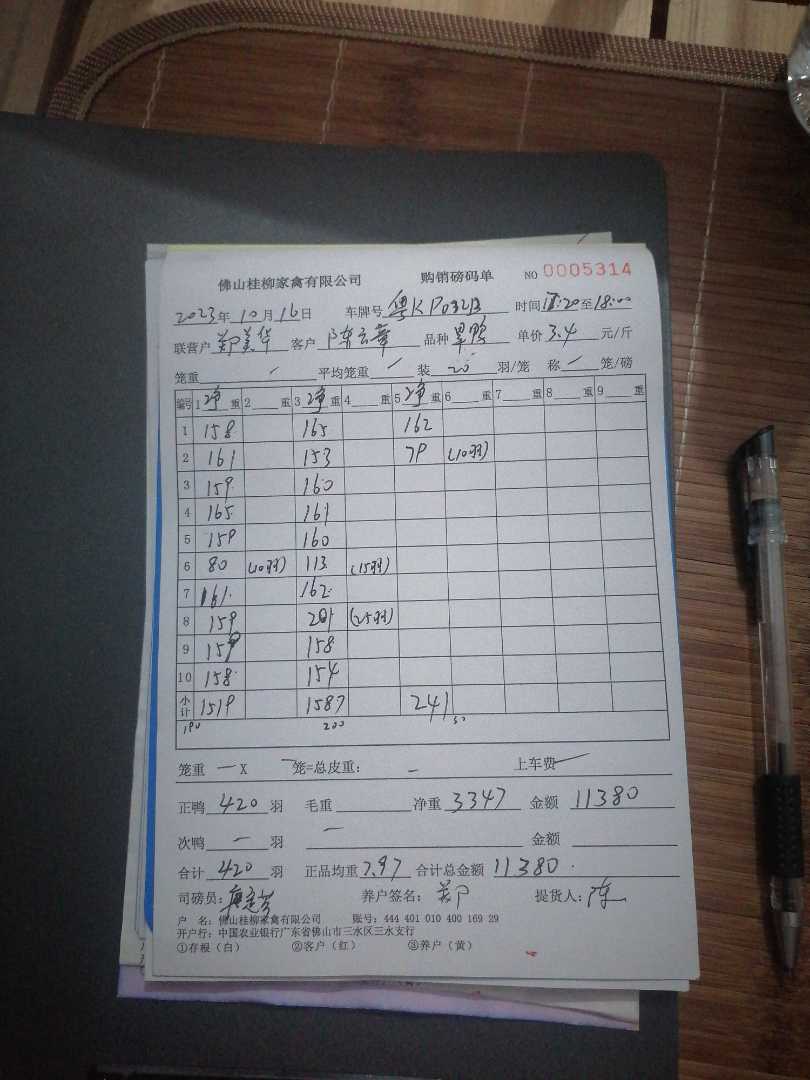 佛山桂柳家禽有限公司 购销磅码单 NO 0005314
2023年10月16日 车牌号 粤KP032B 时间 :20至18:00
联营户 郑美华 客户 陈云 品种 旱鸭 单价 3.4 元/斤
笼重 / 平均笼重 / 装 20 羽/笼 称 / 笼/磅
编号 1 净 重 2 重 3 净 重 4 重 5 净 重 6 重 7 重 8 重 9 重
1 158 165 162
2 161 153 79 (10羽)
3 159 160
4 165 161
5 159 160
6 80 (10羽) 113 (15羽)
7 161. 162.
8 159 201 (25羽)
9 159 158
10 158 154
小计 1519 1587 241
190 200 30
笼重 — X 笼=总皮重: — 上车费
正鸭 420 羽 毛重 净重 3347 金额 11380
次鸭 — 羽 — 金额
合计 420 羽 正品均重 7.97 合计总金额 11380.
司磅员: 养户签名: 郑 提货人: 陈
户 名: 佛山桂柳家禽有限公司 账号: 444 401 010 400 169 29
开户行: 中国农业银行广东省佛山市三水区三水支行
①存根(白) ②客户(红) ③养户(黄)